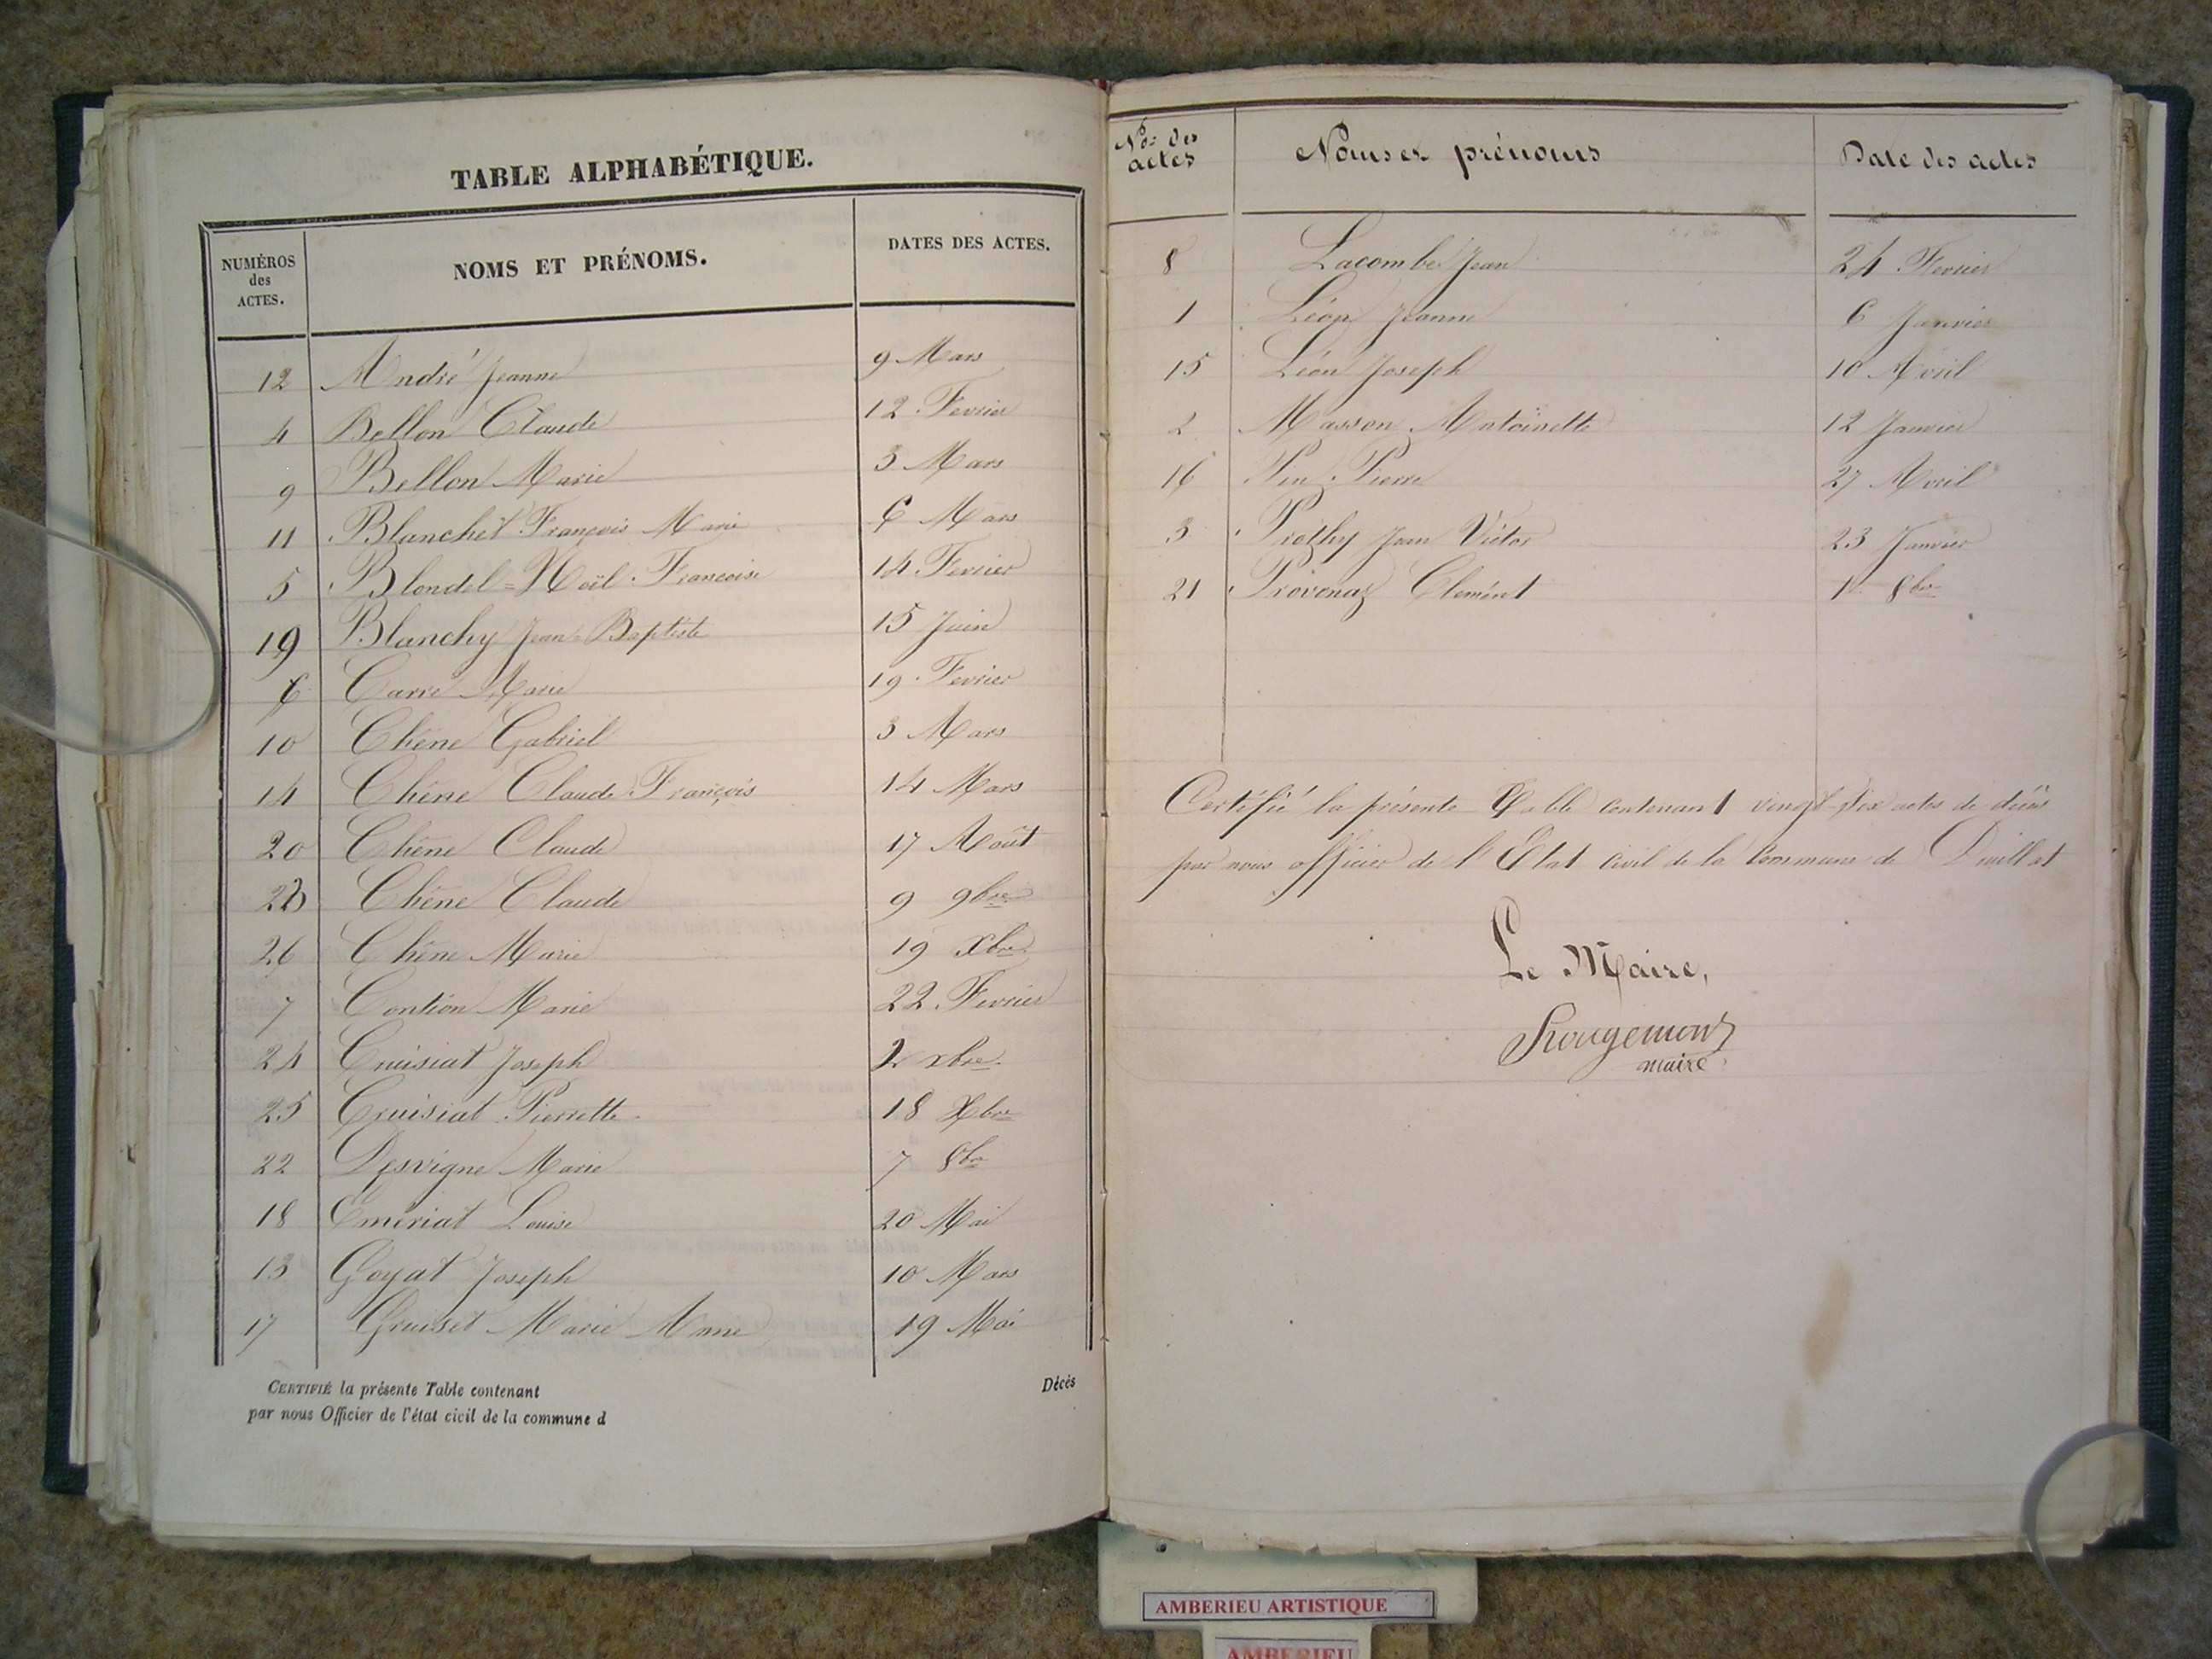 TABLE ALPHABÉTIQUE.
NUMÉROS des ACTES. NOMS ET PRÉNOMS. DATES DES ACTES.
12 André Jeanne 9 Mars
4 Bellon Claude 12 Fevrier
9 Bellon Marie 3 Mars
11 Blanchet François Marie 6 Mars
5 Blondel=Noël Francoise 14 Fevrier
19 Blanchy Jean Baptiste 15 Juin
6 Carre Marie 19 Fevrier
10 Chêne Gabriel 3 Mars
14 Chêne Claude François 14 Mars
20 Chêne Claude 17 Août
23 Chêne Claude 9 9bre
26 Chêne Marie 19 Xbre
7 Contion Marie 22 Fevrier
24 Cruisiat Joseph 2 xbre
25 Cruisiat Pierrette 18 Xbre
22 Desvigne Marie 7 8bre
18 Emeriat Louise 20 Mai
13 Goyat Joseph 10 Mars
17 Gruiset Marie Anne 19 Mai
CERTIFIÉ la présente Table contenant
par nous Officier de l'état civil de la commune d
Décès
Nos des actes Noms et prénoms Date des actes
8 Lacombe Jean 24 Fevrier
1 Léon Jeanne 6 Janvier
15 Léon Joseph 10 Avril
2 Masson Antoinette 12 Janvier
16 Pin Pierre 27 Avril
3 Prothy Jean Victor 23 Janvier
21 Provenaz Clemént 1 8bre
Certifié la présente Table contenant vingt-six actes de décès
par nous officier de l'Etat civil de la Commune de Druillat
Le Maire,
Rougemont
maire
AMBERIEU ARTISTIQUE
AMBERIEU